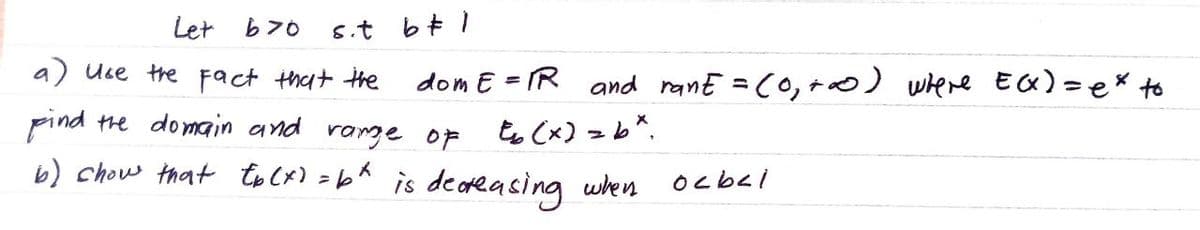 Let b>0 s.t b≠1
a) Use the Fact that the dom E = ℝ and ranE = (0,+∞) where E(x)=e^x to
find the domain and range OF E_b(x) = b^x.
b) show that E_b(x) = b^x is decreasing when 0<b<1